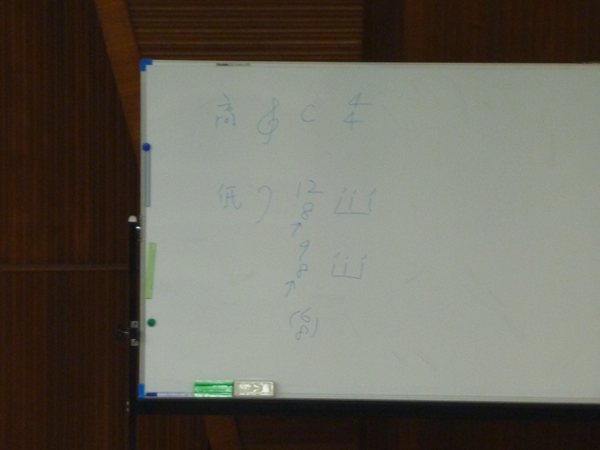 高 𝄞 C 4/4
低 𝄢 12/8
↑ 9/8
↑ (6/8)